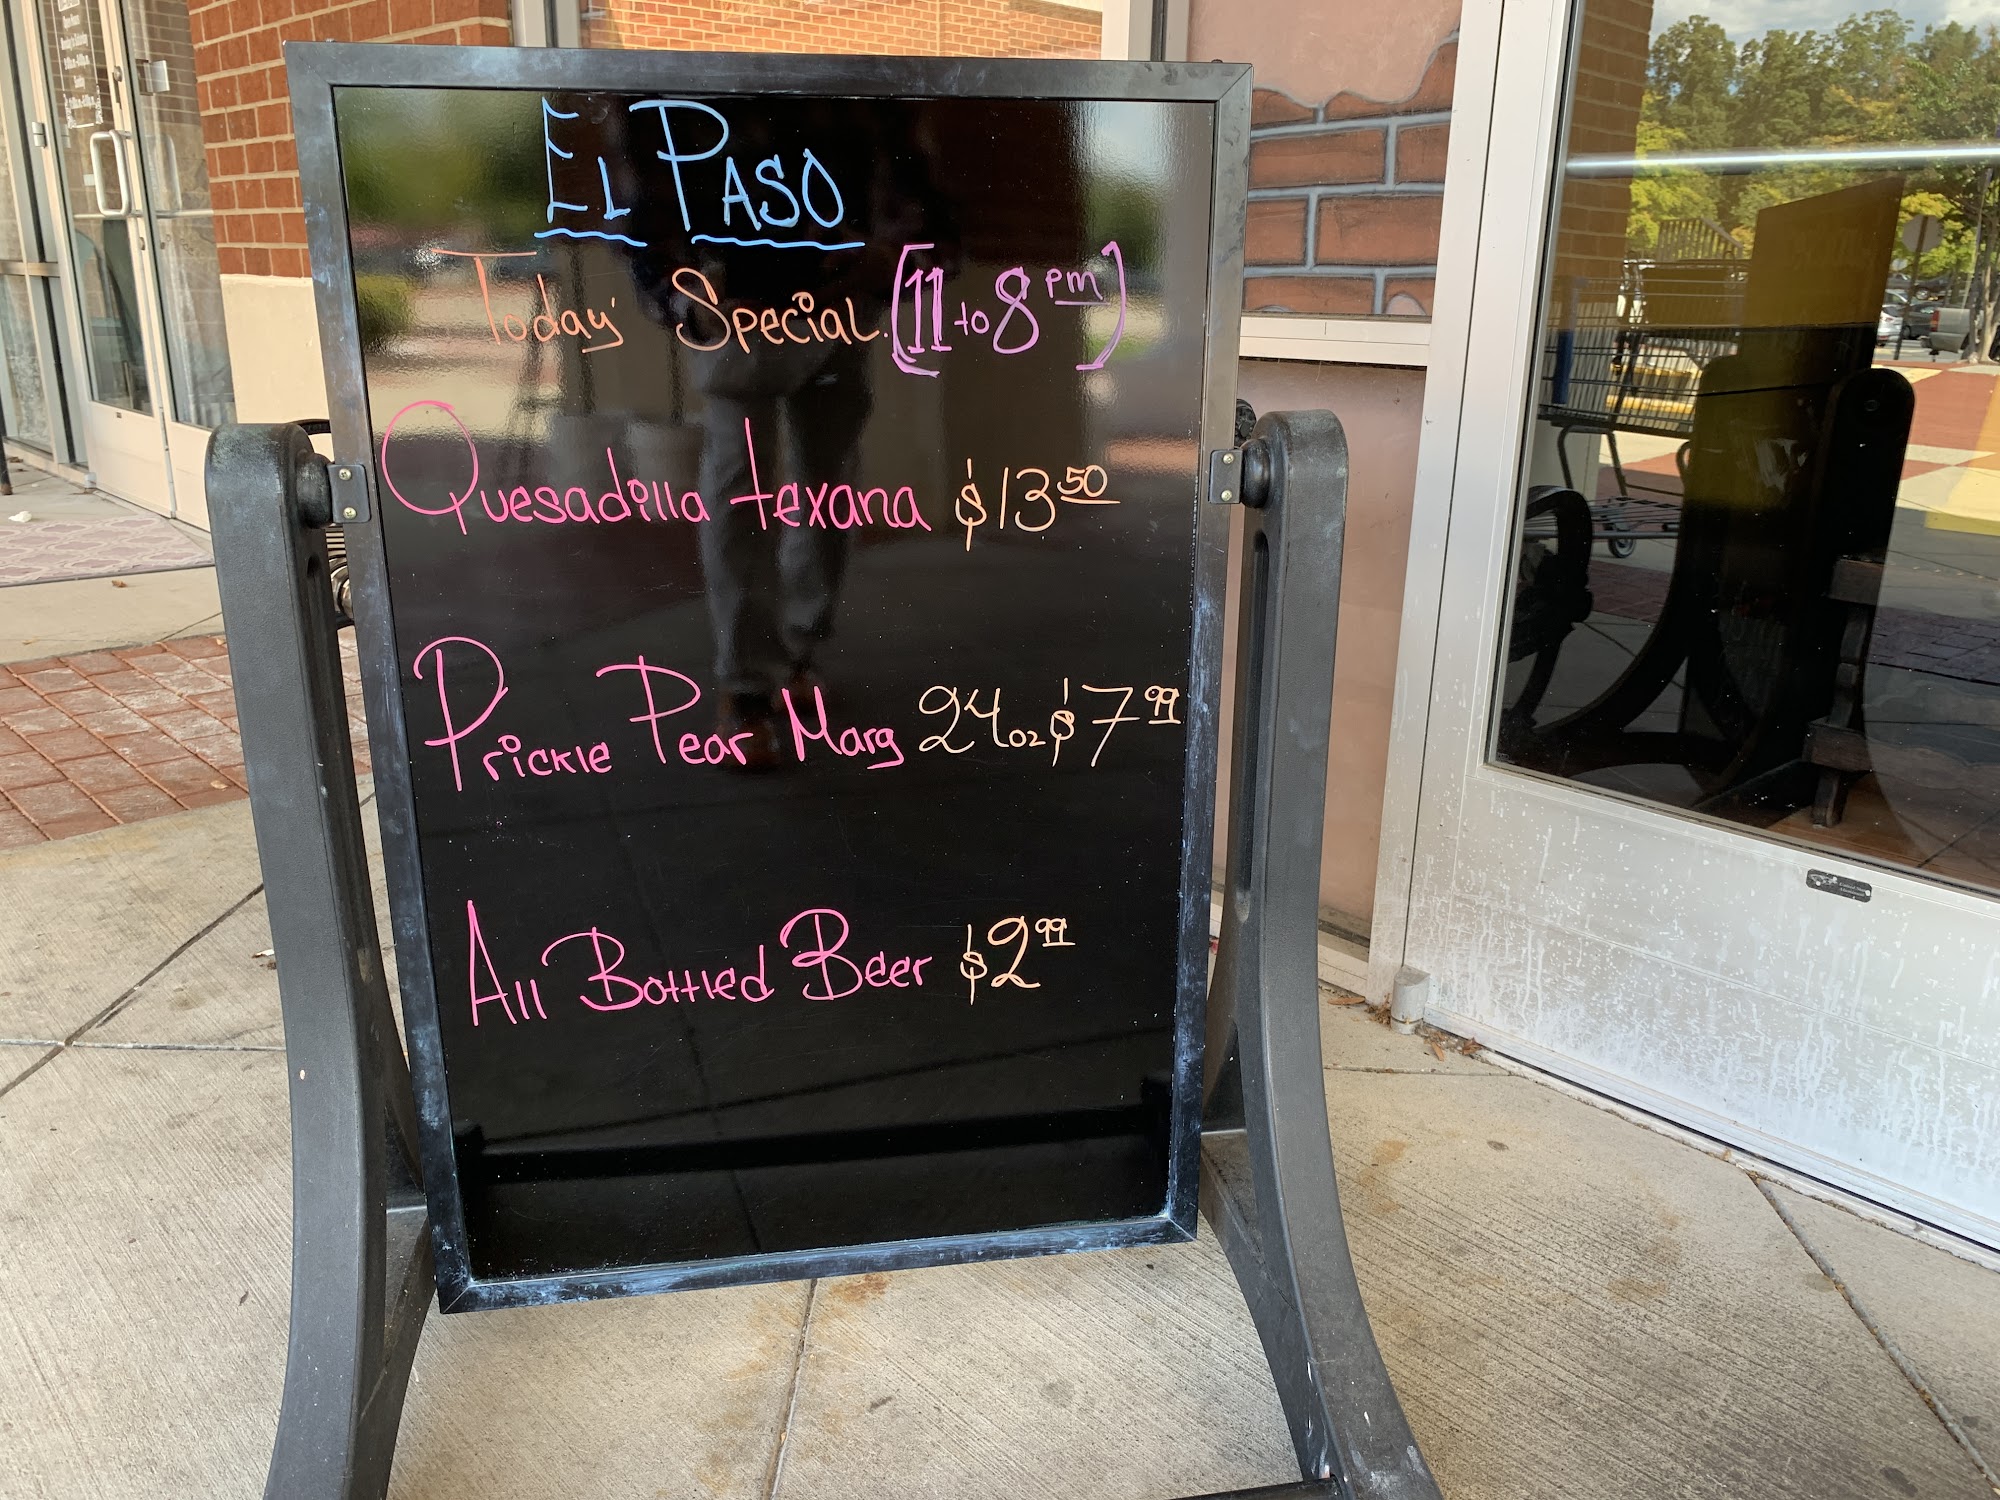 El Paso
Today' Special. (11 to 8 pm)
Quesadilla texana $13.50
Prickle Pear Marg 24oz $7.99
All Bottled Beer $2.99